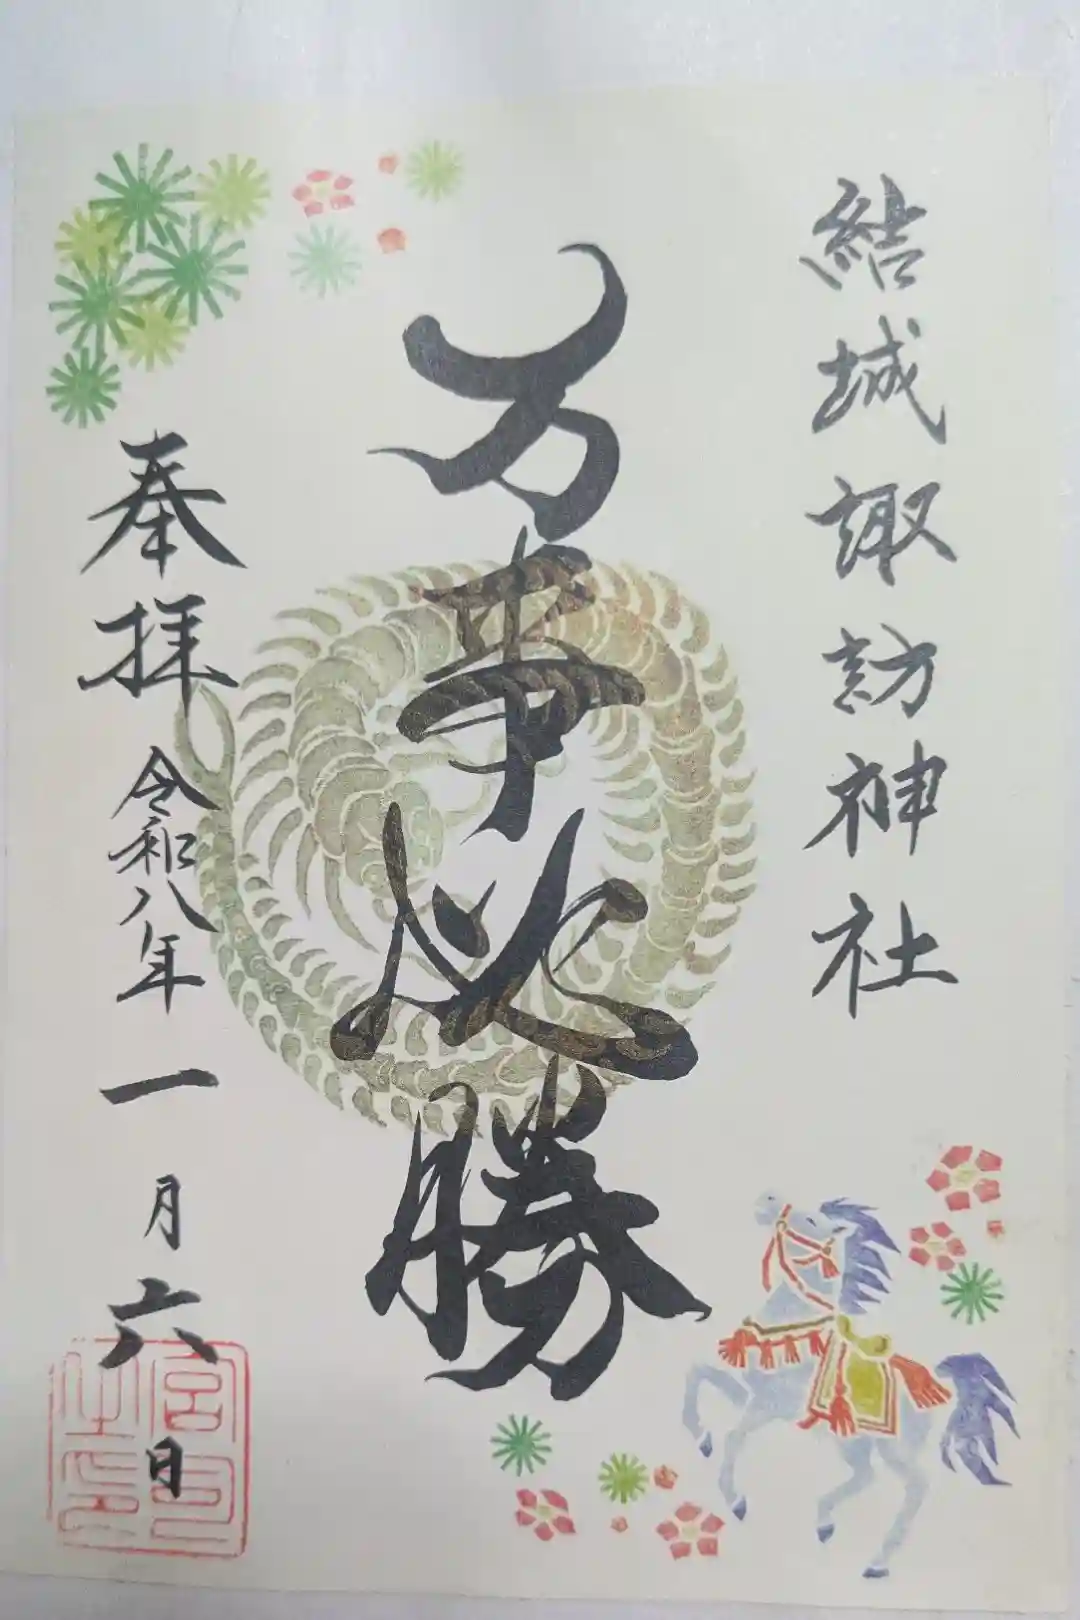 結城諏訪神社
万事必勝
奉拝 令和八年一月六日
宮司之印